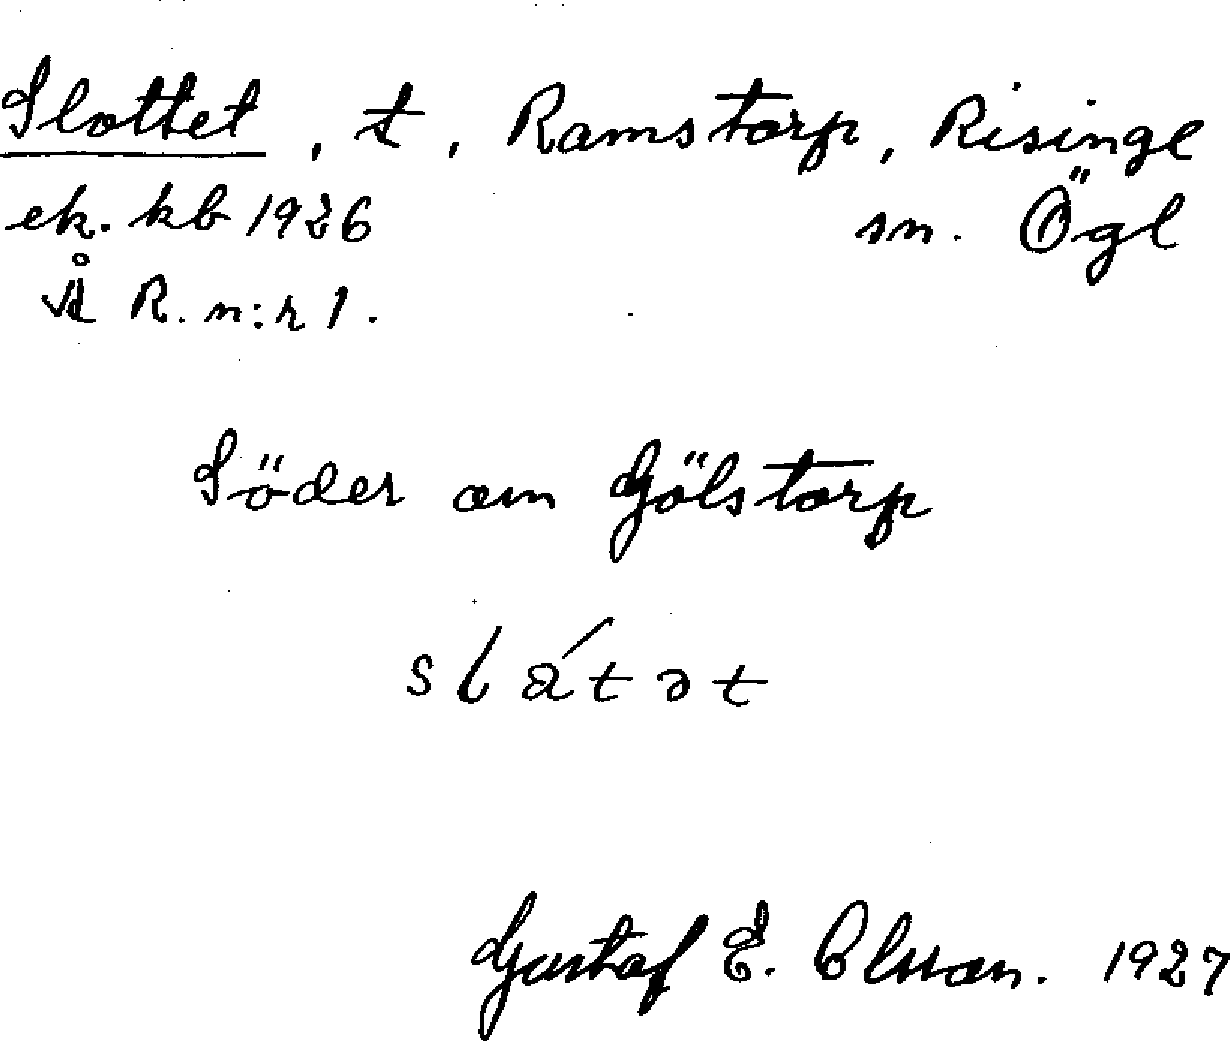 Slottet, t, Ramstorp, Risinge
ek. kb 1926 sn. Ögl
R. n:r 1.
Söder om Gölstorp
slåtət
Gustaf E. Olsson. 1927